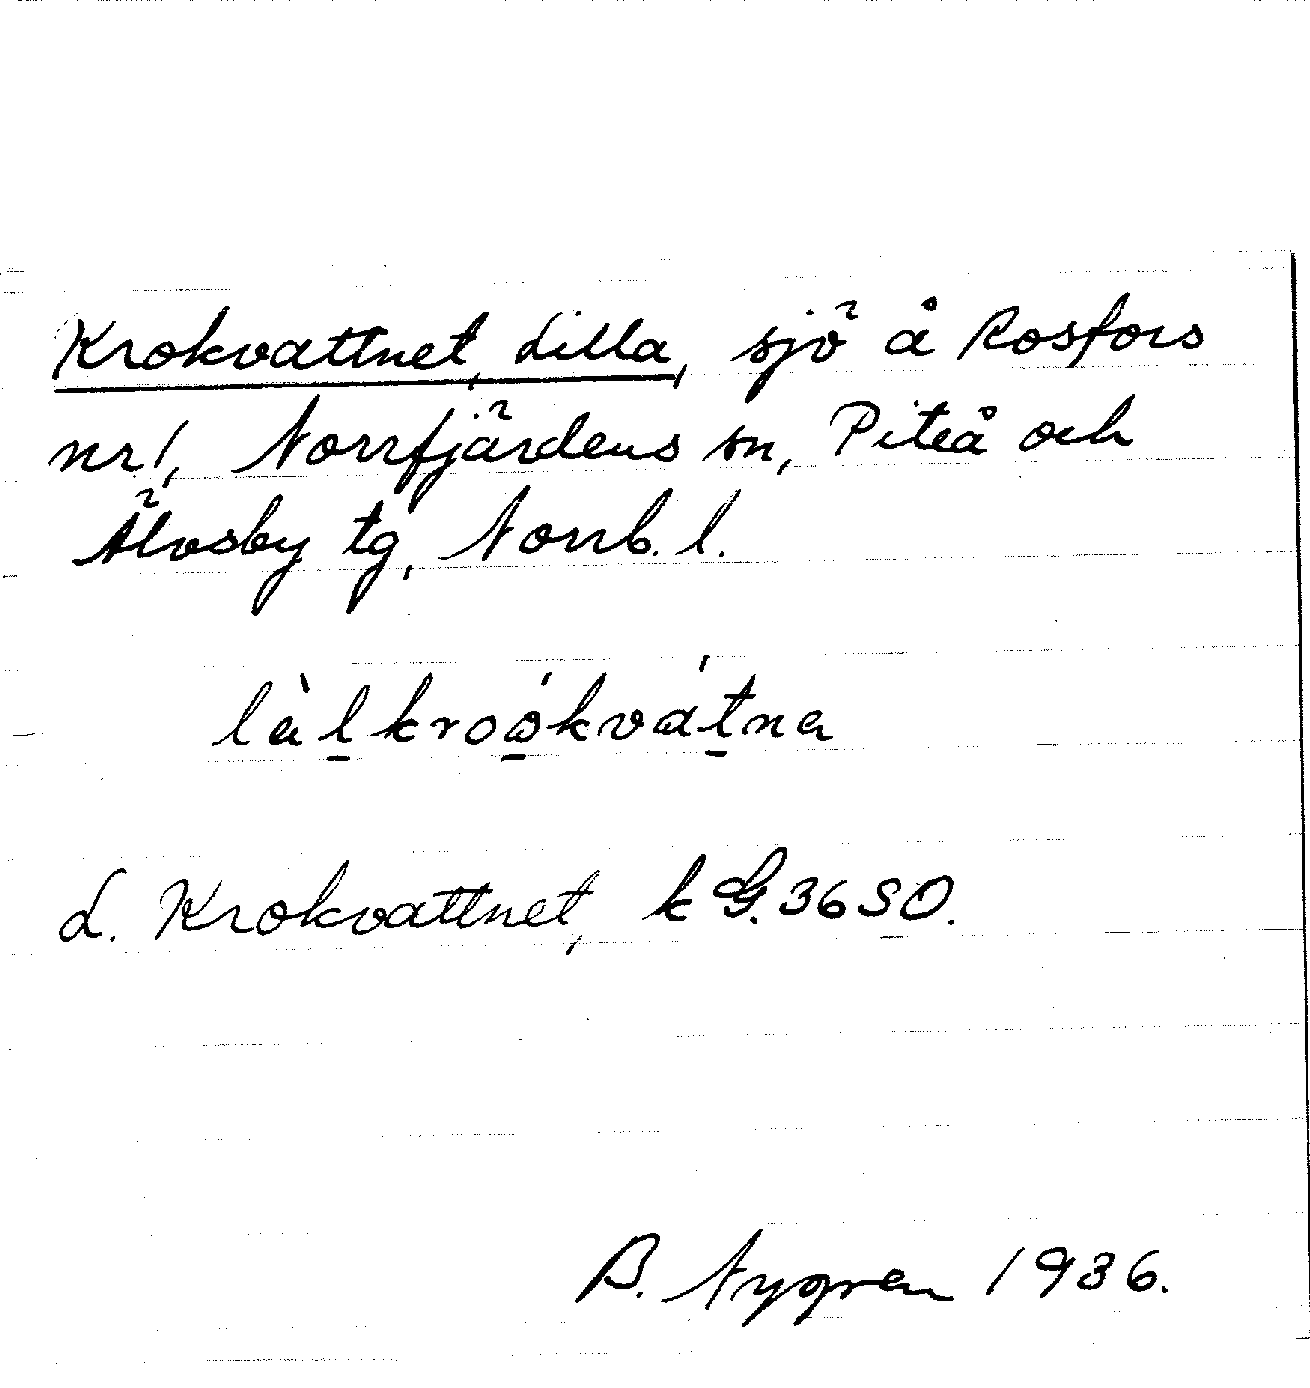 Krokvattnet, Lilla, sjö å Rosfors
nr 1, Norrfjärdens sn, Piteå och
Älvsby tg, Norrb. l.
làl̲kroó̲kvát̲na
L. Krokvattnet, k G. 36 SO.
B. Nygren 1936.